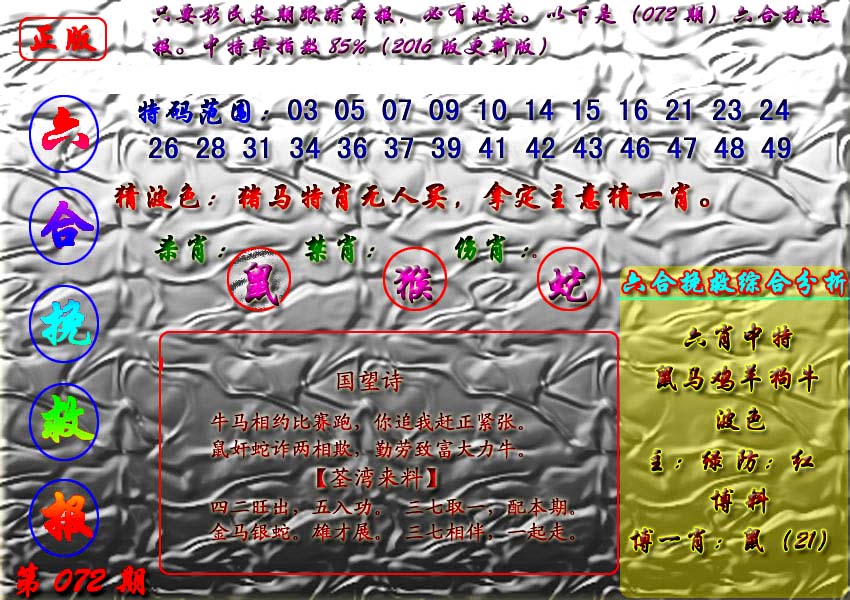 正版
只要彩民长期跟踪本报，必有收获。以下是（072期）六合挽救
报。中特率指数85%（2016版更新版）
六合挽救报
第072期
特码范围：03 05 07 09 10 14 15 16 21 23 24
26 28 31 34 36 37 39 41 42 43 46 47 48 49
猜波色：猪马特肖无人买，拿定主意猜一肖。
杀肖：鼠 禁肖：猴 伤肖：蛇
国望诗
牛马相约比赛跑，你追我赶正紧张。
鼠奸蛇诈两相欺，勤劳致富大力牛。
【荃湾来料】
四二旺出，五入功。 三七取一，配本期。
金马银蛇。雄才展。 三七相伴，一起走。
六合挽救综合分析
六肖中特
鼠马鸡羊狗牛
波色
主：绿防：红
博料
博一肖：鼠（21）